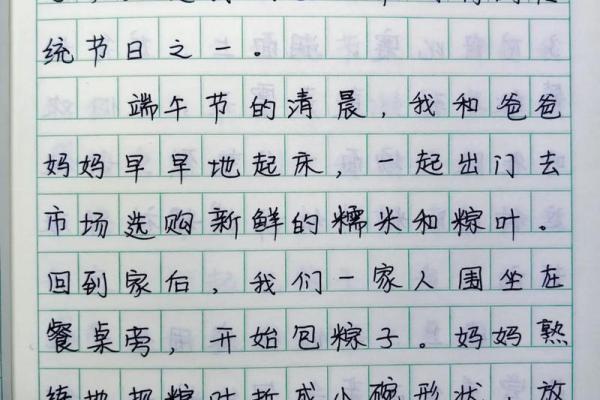 统节日之一。
端午节的清晨，我和爸爸
妈妈早早地起床，一起出门去
市场选购新鲜的糯米和粽叶。
回到家后，我们一家人围坐在
餐桌旁，开始包粽子。妈妈熟
练地把粽叶折成小碗形状，放